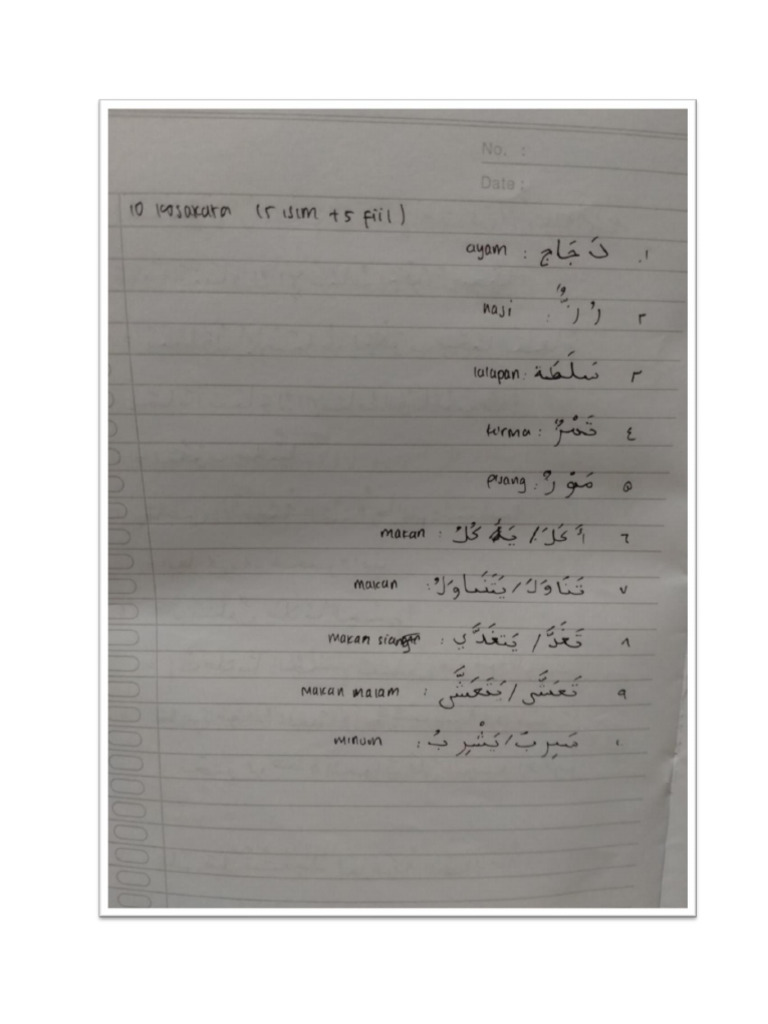 No. :
Date :
10 kosakata (5 isim + 5 fiil)
١. دَجَاج : ayam
٢ رُزٌّ : nasi
٣ سَلَطَة : lalapan
٤ تَمْرٌ : kurma
٥ مَوْزٌ : pisang
٦ أَكَلَ / يَأْكُلُ : makan
٧ تَنَاوَلَ / يَتَنَاوَلُ : makan
٨ تَغَدَّ / يَتَغَدَّي : makan siang
٩ تَعَشَّى / يَتَعَشَّى : makan malam
١٠ شَرِبَ / يَشْرِبُ : minum